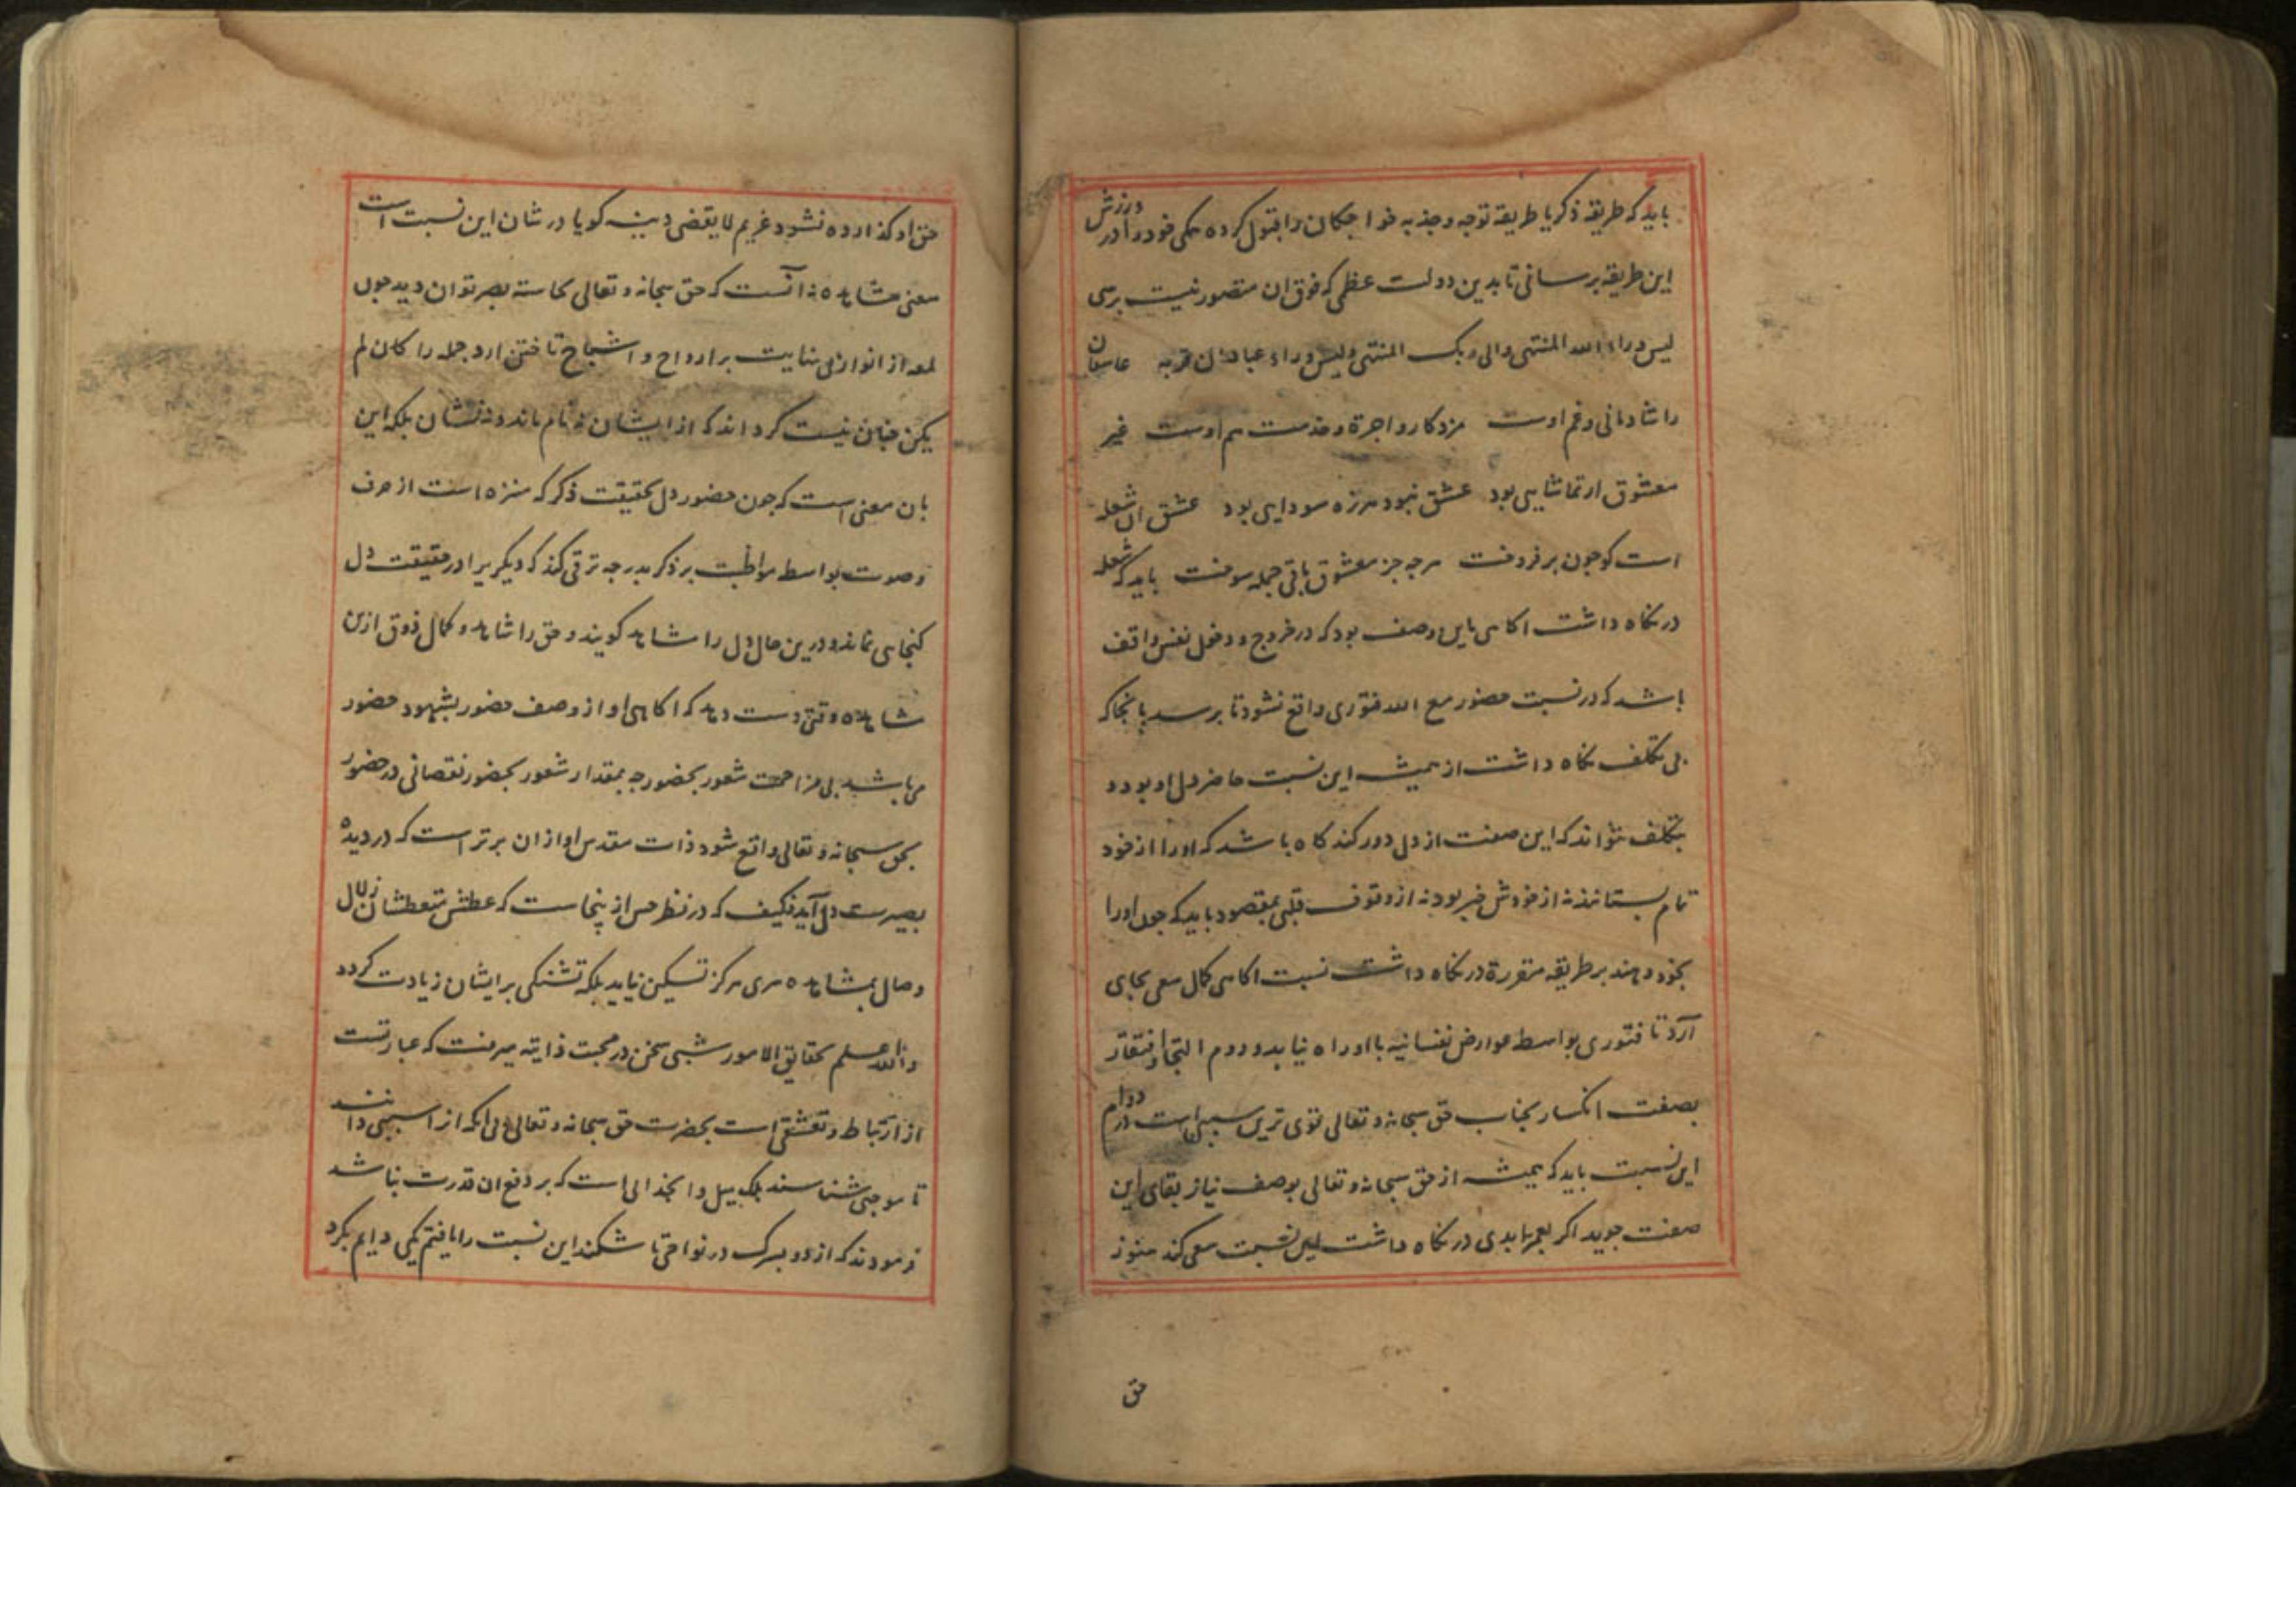 باید که طریقه ذکر یا طریقه توجه و جذبه خواجکان را قبول کرده همکی خود را در ورزش
این طریقه برسانی تا بدین دولت عظمی که فوق ان متصور نیست برسی
لیس وراء الله المنتهی والی ربک المنتهی ولیس وراء عبادان قریه عاشقان
را شادمانی و غم اوست مزدکار و اجرة و خدمت هم اوست غیر
معشوق ار تماشایی بود عشق نبود هرزه سودایی بود عشق ان شعله
است کو چون بر فروخت هر چه جز معشوق باقی جمله سوخت باید که شعله
در نکاه داشت اکاهی باین وصف بود که در خروج و دخول نفس واقف
باشد که در نسبت حضور مع الله فتوری واقع نشود تا برسد بانجا که
بی تکلف نکاه داشت از همیشه این نسبت حاضر دل او بود و
بتکلف نتواند که این صفت از دل دور کند کاه باشد که او را از خود
تمام بستانند نه از خودش خبر بود نه از وقوف قلبی بمقصود باید که چون او را
بخود دهند بر طریقه مقررة در نکاه داشت نسبت اکاهی کمال سعی بجای
آرد تا فتوری بواسطه عوارض نفسانیه باو راه نیابد و دوم التجا و افتقار
بصفت انکسار بجناب حق سبحانه و تعالی قوی ترین سببی است در دوام
این نسبت باید که همیشه از حق سبحانه و تعالی بوصف نیاز بقای این
صفت جوید اکر بعمر ابدی در نکاه داشت این نسبت سعی کند هنوز
حق
حق او کذارده نشود غریم لا یقضی دینه کویا در شان این نسبت است
معنی مشاهده نه آنست که حق سبحانه و تعالی بحاسته بصر توان دید چون
لمعه از انوار بی نهایت بر ارواح و اشباح تاختن ارد جمله را کان لم
یکن چنان نیست کرداند که از ایشان نه نام ماند و نه نشان بلکه این
بان معنی است که چون حضور دل بحقیقت ذکر که منزه است از حرف
و صوت بواسطه مواظبت بر ذکر بدرجه ترقی کند که دیکریرا در حقیقت دل
کنجایی نماند و درین حال دل را شاهد کویند و حق را شاهد و کمال ذوق ازین
مشاهده وقتی دست دهد که اکاهی او از وصف حضور بشهود حضور
می باشد بی مزاحمت شعور بحضور چه بمقدار شعور بحضور نقصانی در حضور
بحق سبحانه و تعالی واقع شود ذات مقدس او از ان برتر است که در دیده
بصیرت دل آید فکیف که در نظر حس از ینجاست که عطش متعطشان زلال
وصال بمشاهده سری هرکز تسکین نیابد بلکه تشنکی بر ایشان زیادت کردد
والله اعلم بحقایق الامور شبی سخن در محبت ذاتیه میرفت که عبارتست
از ارتباط و تعشقی است بحضرت حق سبحانه و تعالی بی انکه از ان سببی دانند
تا موجبی شناسند بلکه میل و انجذابی است که بر دفع ان قدرت نباشد
فرمودند که از دو بسرک در نواحی تاشکند این نسبت را یافتم یکی دایم بکرد